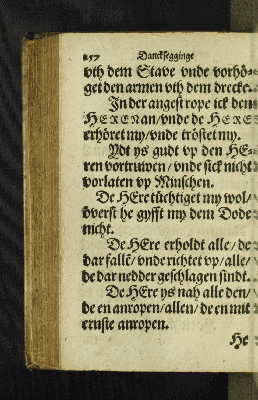 257 Dancksegginge
vth dem Stave vnde vorhö-
get den armen vth dem drecke.
In der angest rope ick den
HEREN an/ vnde de HERE
erhöret my/ vnde tröstet my.
Ydt ys gudt vp den HE-
ren vortruwen/ vnde sick nicht
vorlaten vp Minschen.
De HEre tüchtiget my wol/
överst he gyfft my dem Dode
nicht.
De HEre erholdt alle/ de
dar fallē/ vnde richtet vp/ alle/
de dar nedder geschlagen sindt.
De HEre ys nah alle den/
de en anropen/ allen/ de en mit
ernste anropen.
He